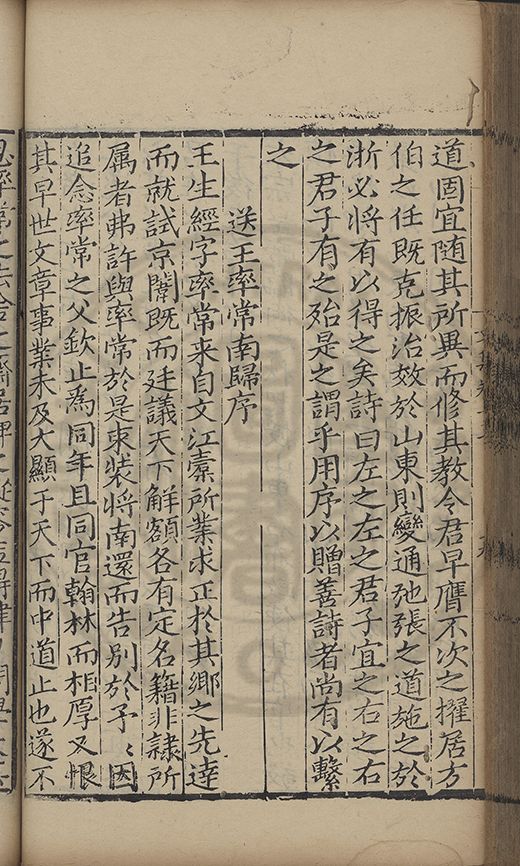 道固宜随其所異而修其教令君早膺不次之擢居方
伯之任既克振治效於山東則變通弛張之道施之於
浙必將有以得之矣詩曰左之左之君子宜之右之右
之君子有之殆是之謂乎用序以贈善詩者尚有以繫
之
送王率常南歸序
王生經字率常来自文江橐所業求正於其鄉之先達
而就試京闈既而廷議天下解額各有定名籍非隷所
属者弗許與率常於是束裝將南還而告别於予〻因
追念率常之父欽止為同年且同官翰林而相厚又恨
其早世文章事業未及大顯于天下而中道止也遂不